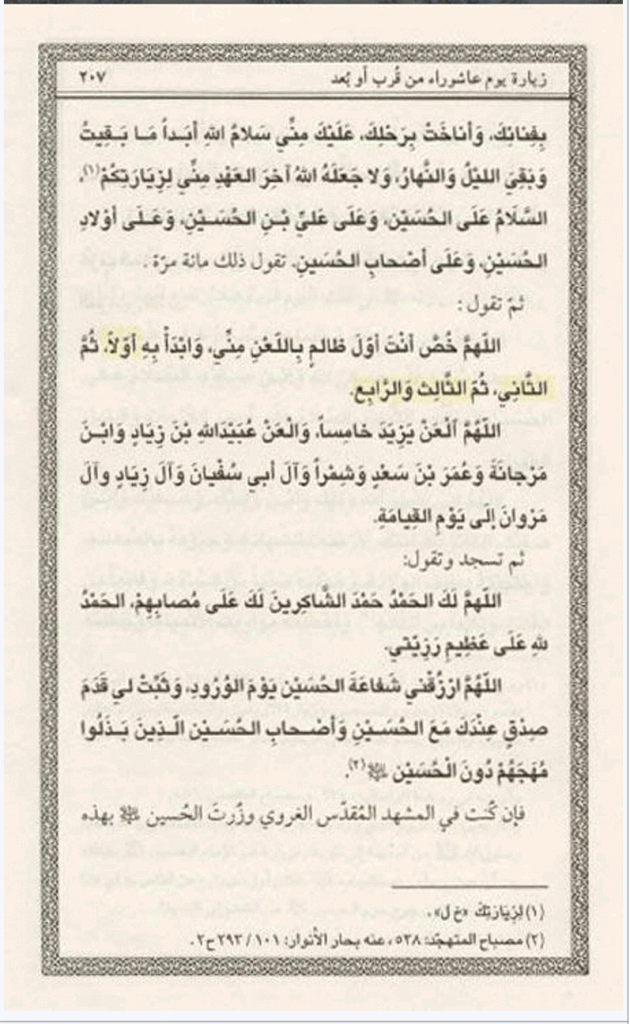 زيارة يوم عاشوراء من قُرب أو بُعد ٢٠٧
بِفِنائِكَ، وَأناخَتْ بِرَحْلِكَ، عَلَيْكَ مِنِّي سَلامُ اللهِ أبَداً مَا بَقِيتُ
وَبَقِيَ اللّيْلُ وَالنَّهارُ، وَلا جَعَلَهُ اللهُ آخِرَ العَهْدِ مِنِّي لِزِيَارَتِكُمْ(١)،
السَّلَامُ عَلَى الحُسَيْنِ، وَعَلَى عَليِّ بْنِ الحُسَيْنِ، وَعَـلَى أوْلادِ
الحُسَيْنِ، وَعَلَى أصْحابِ الحُسَينِ. تقول ذلك مائة مرّة .
ثمّ تقول :
اللّهمَّ خُصَّ أنْتَ أوّلَ ظالمٍ بِاللّعْنِ مِنِّي، وَابْدَأْ بِهِ أوّلاً، ثُمَّ
الثَّانِي، ثُمَّ الثَّالِثَ وَالرَّابِعَ.
اللّهُمَّ الْعَنْ يَزِيْدَ خامِساً، وَالْعَنْ عُبَيْدَاللهِ بْنَ زِيَادٍ وَابْـنَ
مَرْجانَةَ وَعُمَرَ بْنَ سَعْدٍ وَشِمْراً وَآلَ أبي سُفْيانَ وَآلَ زِيادٍ وآلَ
مَرْوانَ إلى يَوْمِ القِيامَةِ.
ثم تسجد وتقول:
اللّهمَّ لَكَ الحَمْدُ حَمْدَ الشَّاكِرِينَ لَكَ عَلَى مُصابِهِمْ، الحَمْدُ
للهِ عَلَى عَظِيمِ رزِيّتي.
اللّهُمَّ ارْزُقْنِي شَفاعَةَ الحُسَيْنِ يَوْمَ الوُرُودِ، وَثَبِّتْ لي قَدَمَ
صِدْقٍ عِنْدَكَ مَعَ الحُسَـيْنِ وَأصْـحابِ الحُسَـيْنِ الّـذِينَ بَـذَلُوا
مُهَجَهُمْ دُونَ الْحُسَيْنِ ﷺ(٢).
فإن كُنت في المشهد المُقدّس الغروي وزُرتَ الحُسين ﷺ بهذه
(١) لِزِيَارَتِكَ «خ ل» .
(٢) مصباح المتهجّد: ٥٣٨، عنه بحار الأنوار: ١٠١ / ٢٩٣ ح٢ .